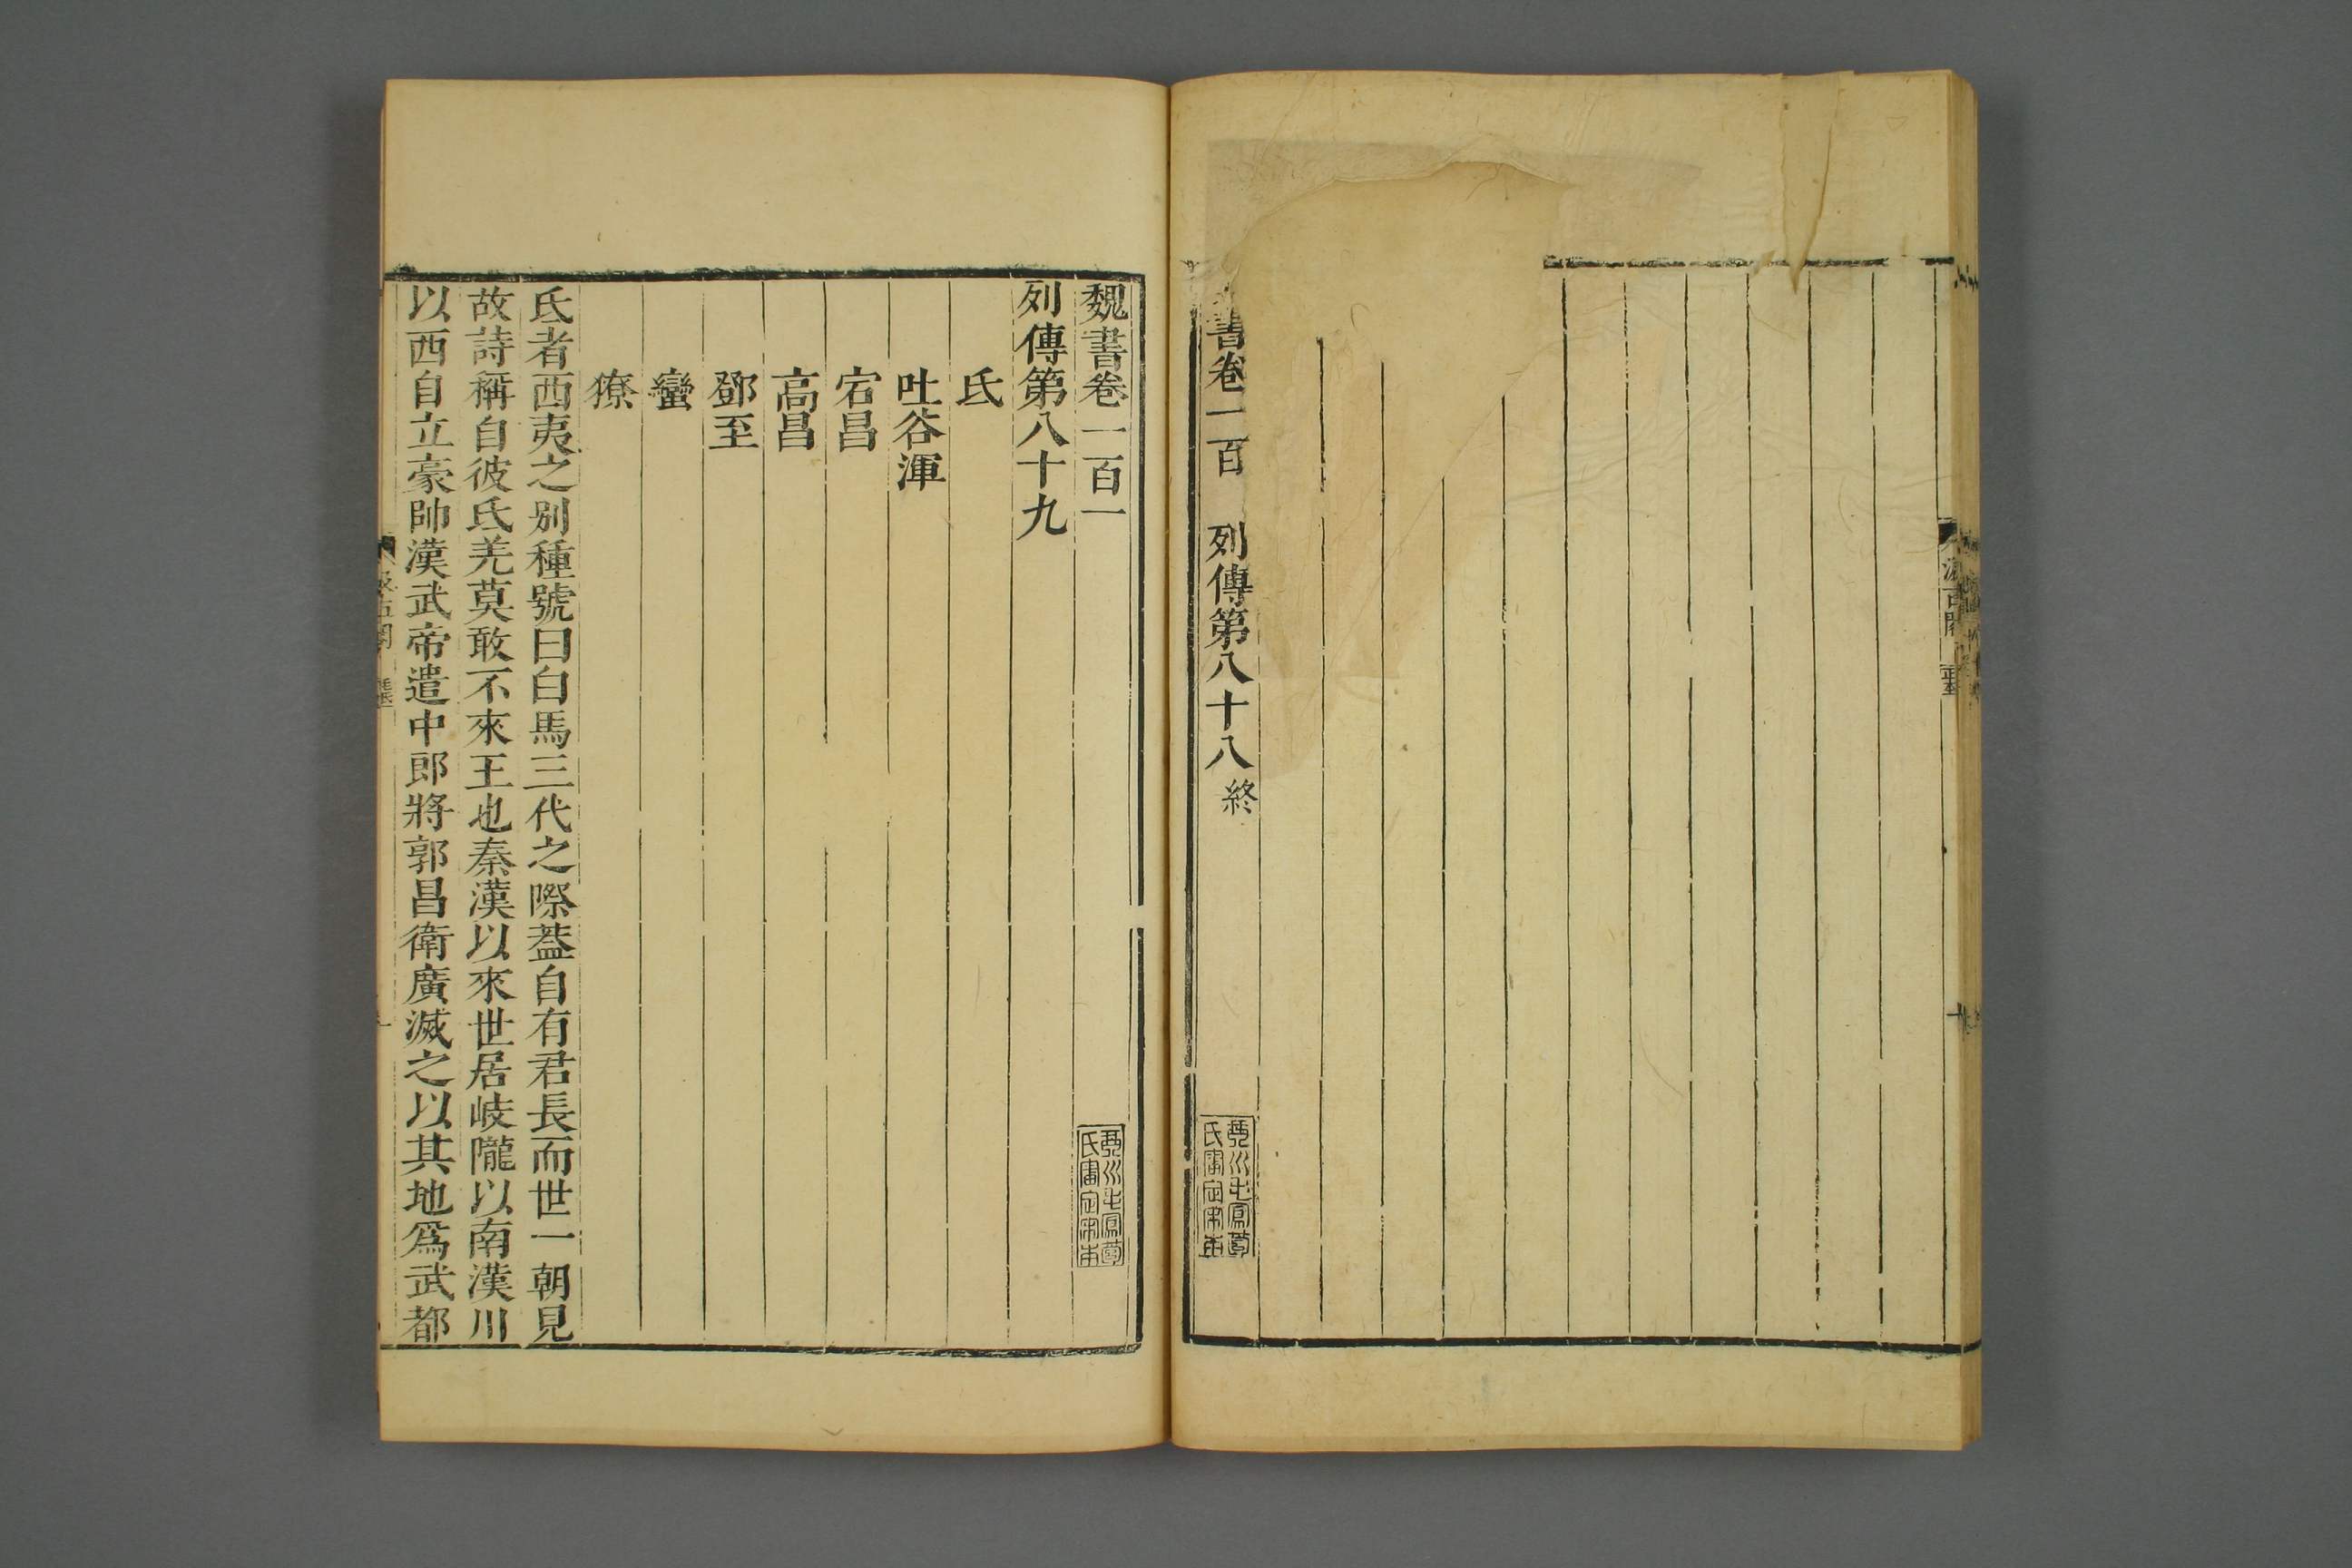 書卷一百　列傳第八十八終
魏書卷一百一
列傳第八十九
氐
吐谷渾
宕昌
高昌
鄧至
蠻
獠
氐者西夷之别種號曰白馬三代之際葢自有君長而世一朝見
故詩稱自彼氐羌莫敢不來王也秦漢以來世居岐隴以南漢川
以西自立豪帥漢武帝遣中郎將郭昌衛廣滅之以其地爲武都